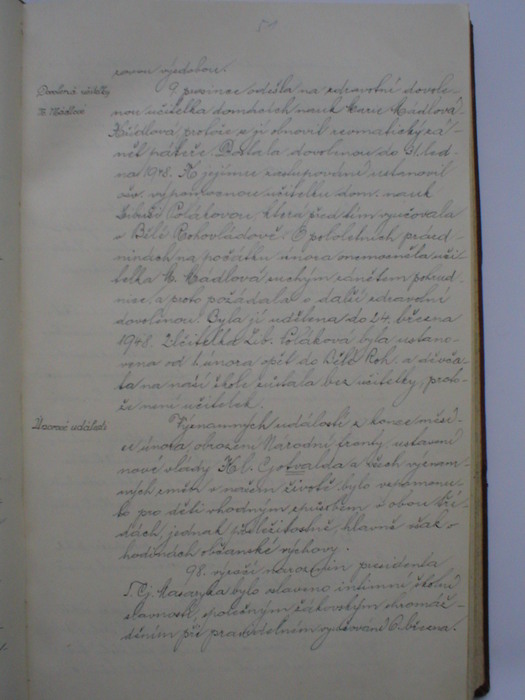 51
rovou výzdobou.
Dovolená učitelky
M. Mádlové
9. prosince odešla na zdravotní dovole-
nou učitelka domácích nauk Marie Mádlová
protože se jí obnovil reomatický zá-
nět páteře. Dostala dovolenou do 31. led-
na 1948. K jejímu zastupování ustanovil
ošv. výpomocnou učitelku dom. nauk
Libuši Polákovou, která před tím vyučovala
v Bělé Rohovládově. O pololetních prázd-
ninách na počátku února onemocněla uči-
telka M. Mádlová suchým zánětem pohrud-
nice a proto požádala o další zdravotní
dovolenou. Byla jí udělena do 24. března
1948. Učitelka Lib. Poláková byla ustano-
vena od 1. února opět do Bělé Roh. a děvča-
ta na naší škole zůstala bez učitelky, proto-
že není učitelek.
Únorové události
Významných událostí z konce měsí-
ce února, obrození Národní fronty, ustavení
nové vlády Kl. Gottwalda a všech význam-
ných změn v našem životě bylo vzpomenu-
to pro děti vhodným způsobem v obou tří-
dách, jednak příležitostně, hlavně však v
hodinách občanské výchovy.
98. výročí narozenin presidenta
T. G. Masaryka bylo slaveno intimní školní
slavností, společným žákovským shromáž-
děním při pravidelném vyučování 6. března.